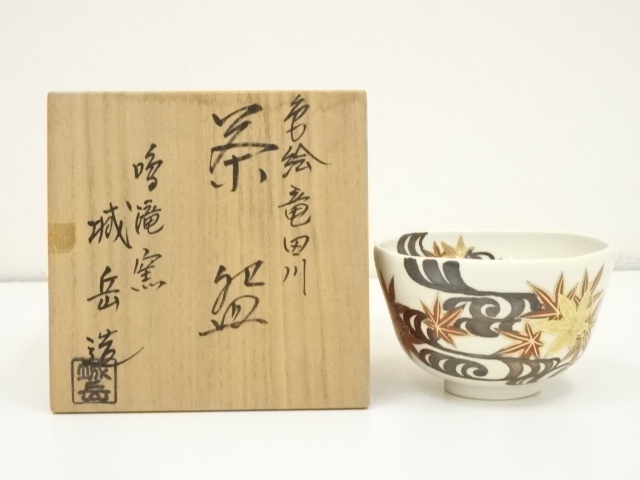 色絵竜田川
茶盌
鳴滝窯
城岳造
城岳